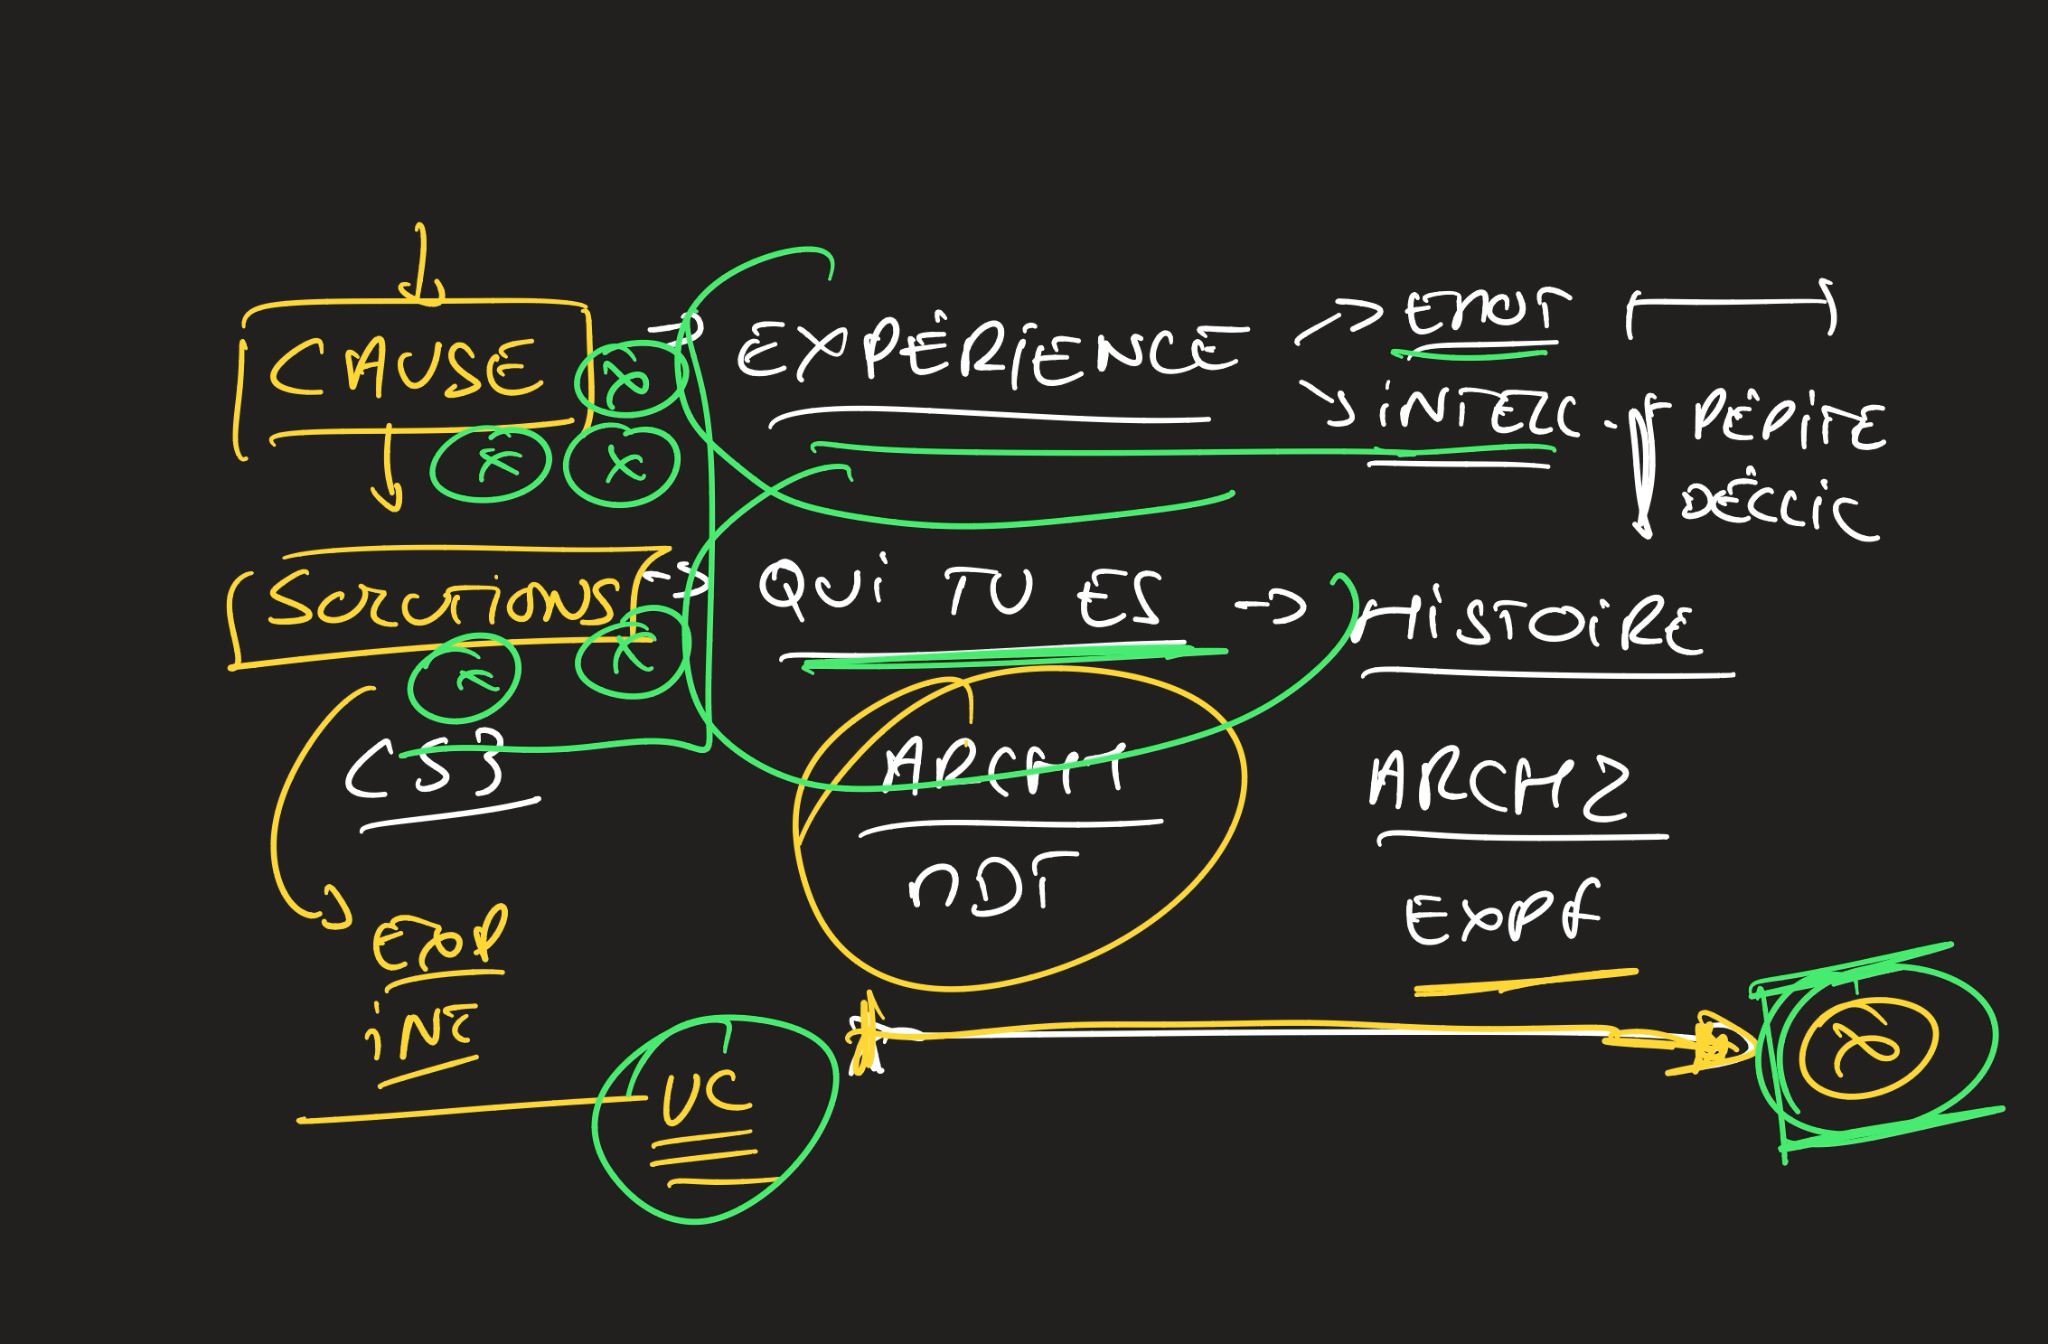 CAUSE → EXPÉRIENCE → EMOT
→ INTELL.
PÉPITE
DÉCLIC
SOLUTIONS → QUI TU ES → HISTOIRE
CS3 ARCH1 ARCH2
NDT
EXP INT
UC